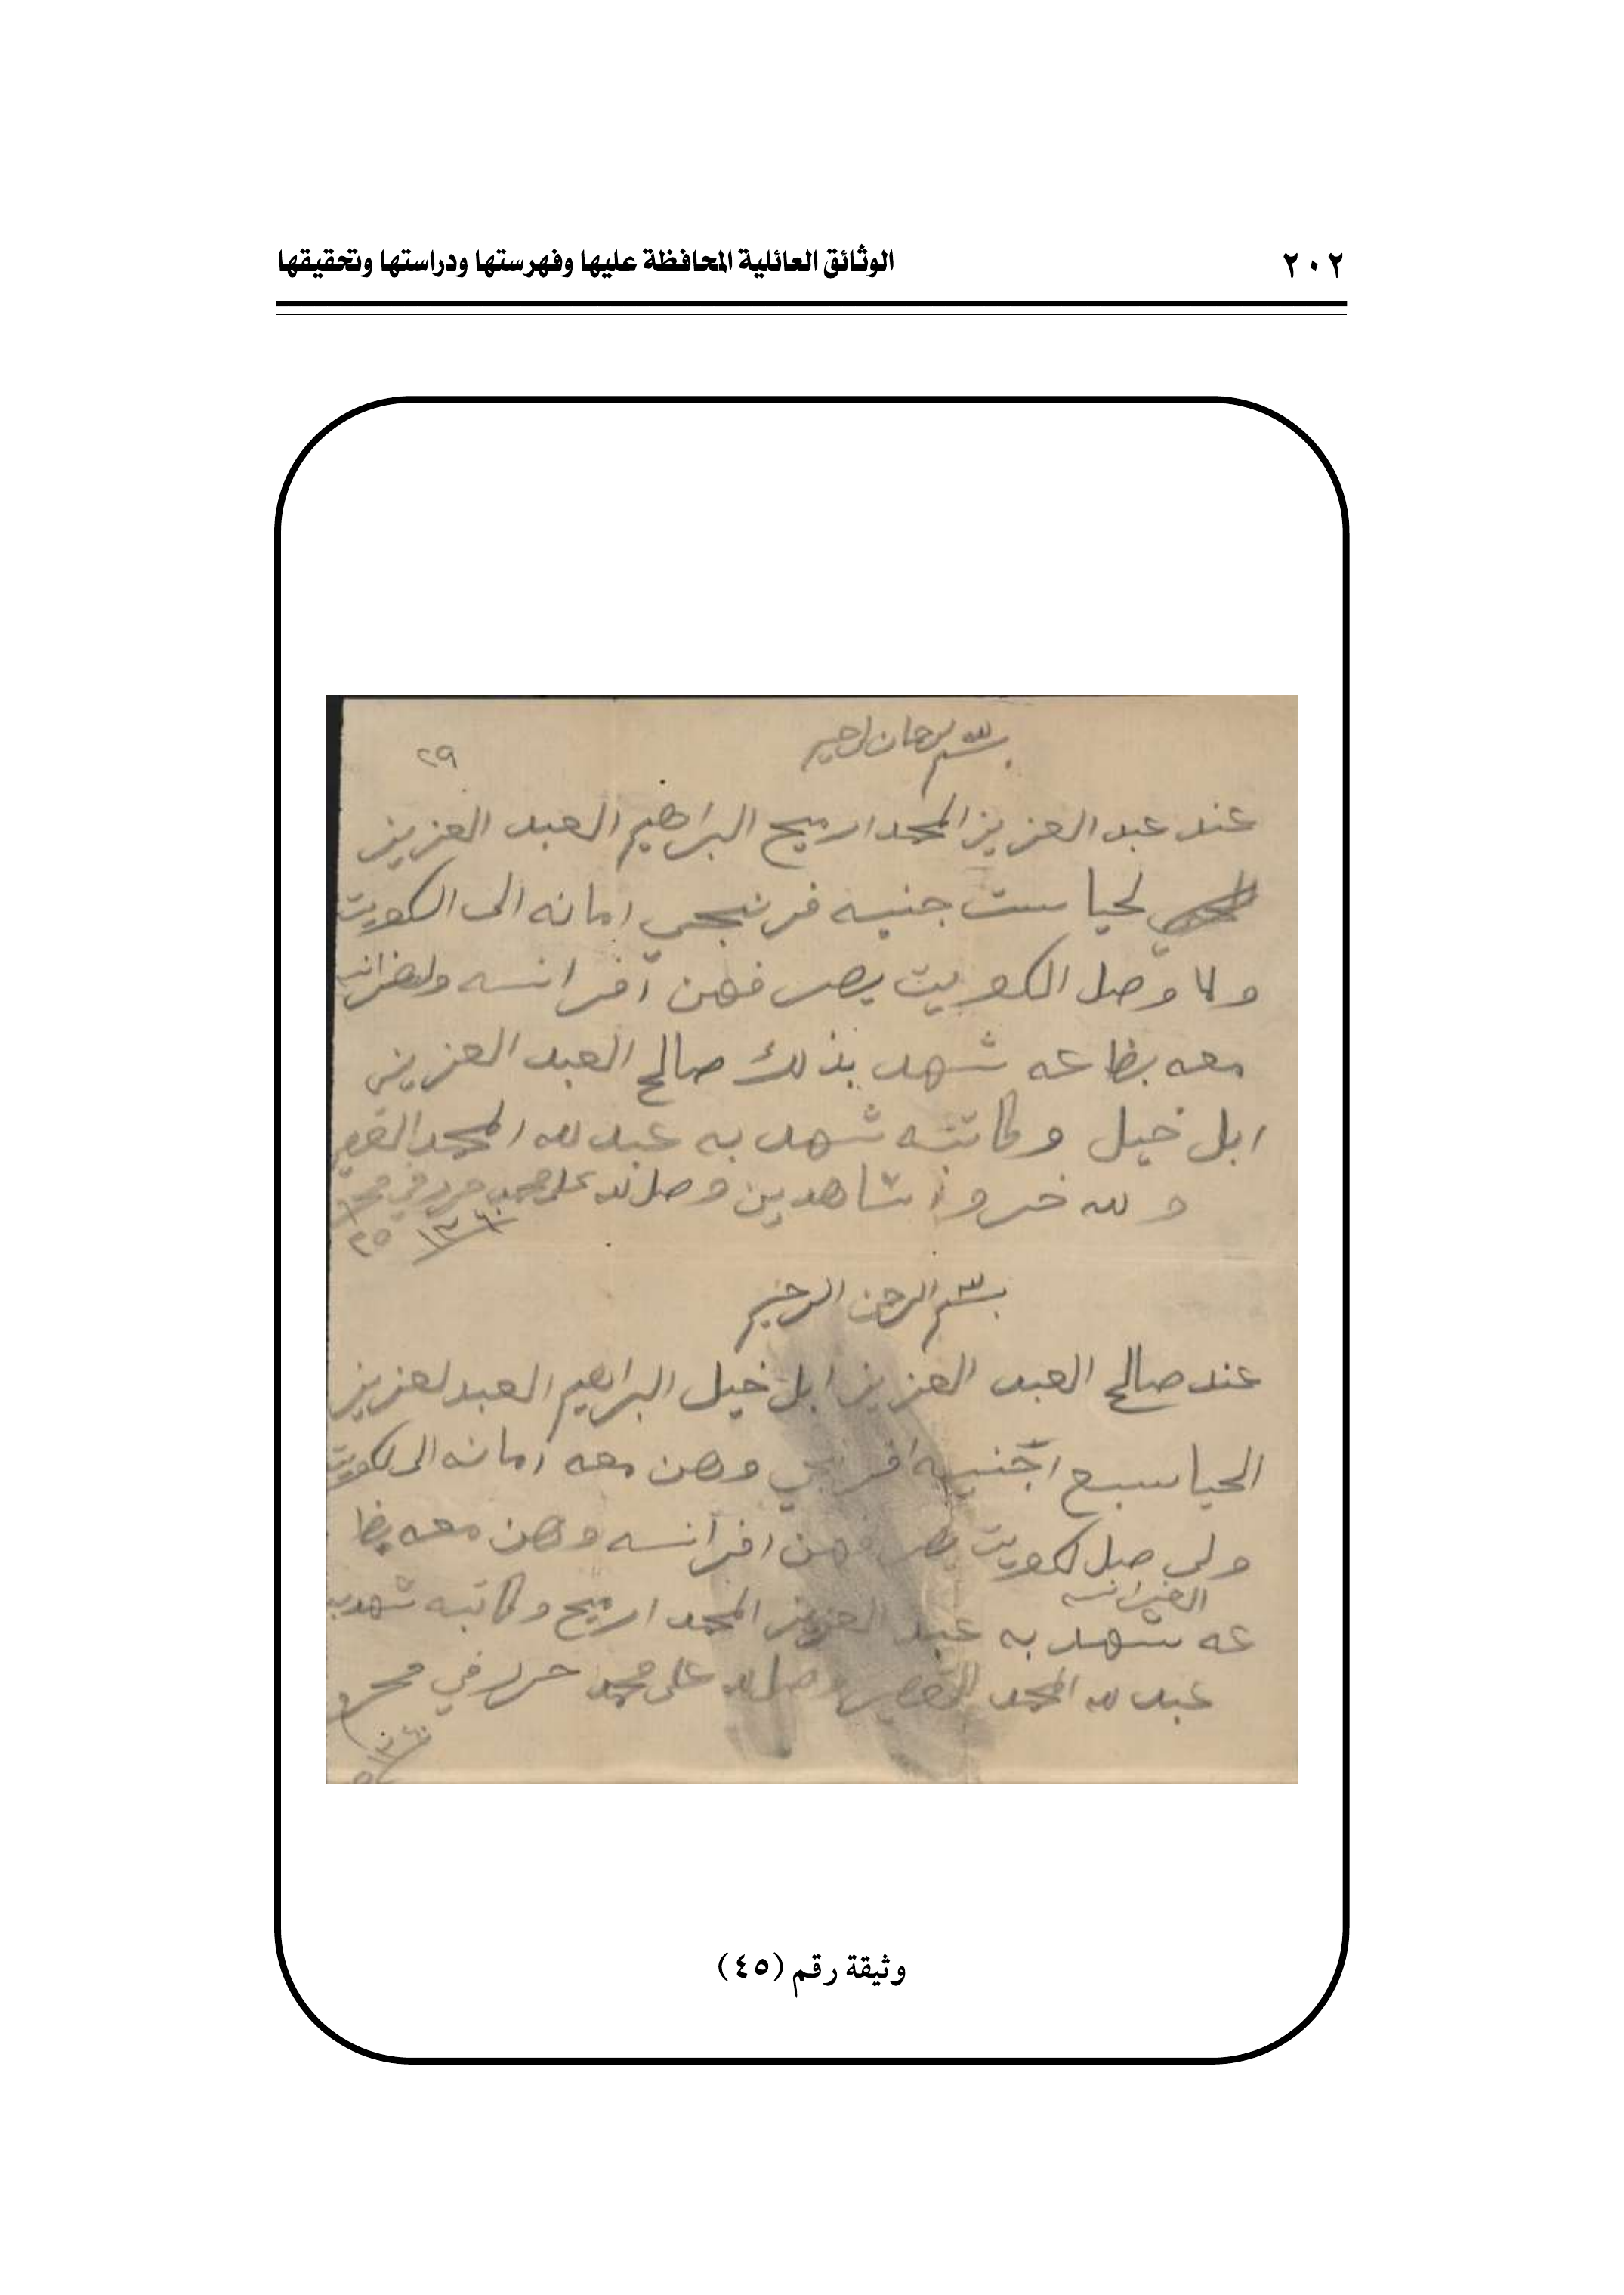 ٢٠٢ الوثائق العائلية المحافظة عليها وفهرستها ودراستها وتحقيقها
٢٩
عند عبد العزيز المحمد ارميح البراهيم العبد العزيز
لحيا ست جنيه فرنجي امانه الى الكويت
ولا وصل الكويت يصرفهن افرانسه
معه بظاعه شهد بذلك صالح العبد العزيز
ابل خيل وكاتبه شهد به عبد لله المحمد
و لله خير شاهدين وصل لله على محمد حرر في محرم
٢٥ ١٣٦٠
بسم الرحمن الرحيم
عند صالح العبد العزيز ابل خيل البراهيم العبد لعزيز
الحيا سبع اجنيه افرنجي وهن معه امانه الى لكويت
ولى صل لكويت يصرفهن افرانسه وهن معه بظا
الفرانسه
عه شهد به عبد العزيز المحمد ارميح وكاتبه شهد به
عبد لله المحمد وصل لله على محمد حرر في محرم
وثيقة رقم (٤٥)